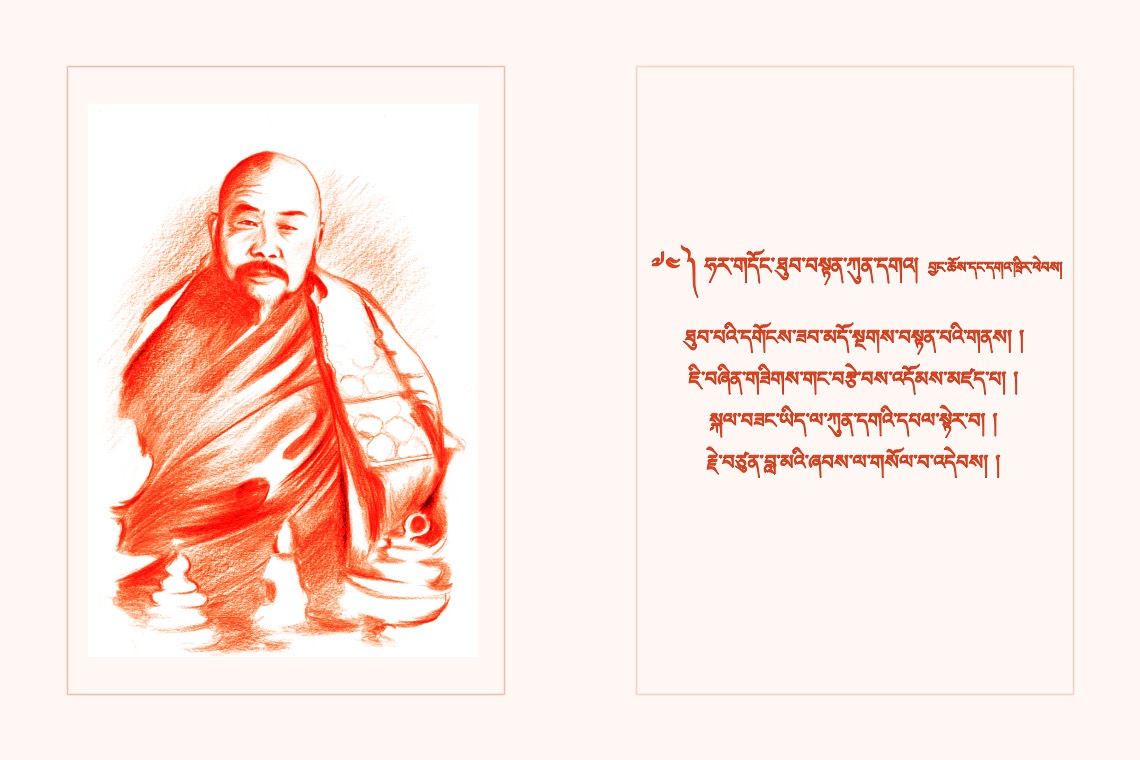 ༡༤༽ ཧར་གདོང་ཐུབ་བསྟན་ཀུན་དགའ། བྱང་ཆོས་དང་དགའ་ཁྲིར་ཕེབས།
ཐུབ་པའི་དགོངས་ཟབ་མདོ་སྔགས་བསྟན་པའི་གནས། །
ཇི་བཞིན་གཟིགས་གང་བརྩེ་བས་འདོམས་མཛད་པ། །
སྐལ་བཟང་ཡིད་ལ་ཀུན་དགའི་དཔལ་སྟེར་བ། །
རྗེ་བཙུན་བླ་མའི་ཞབས་ལ་གསོལ་བ་འདེབས། །